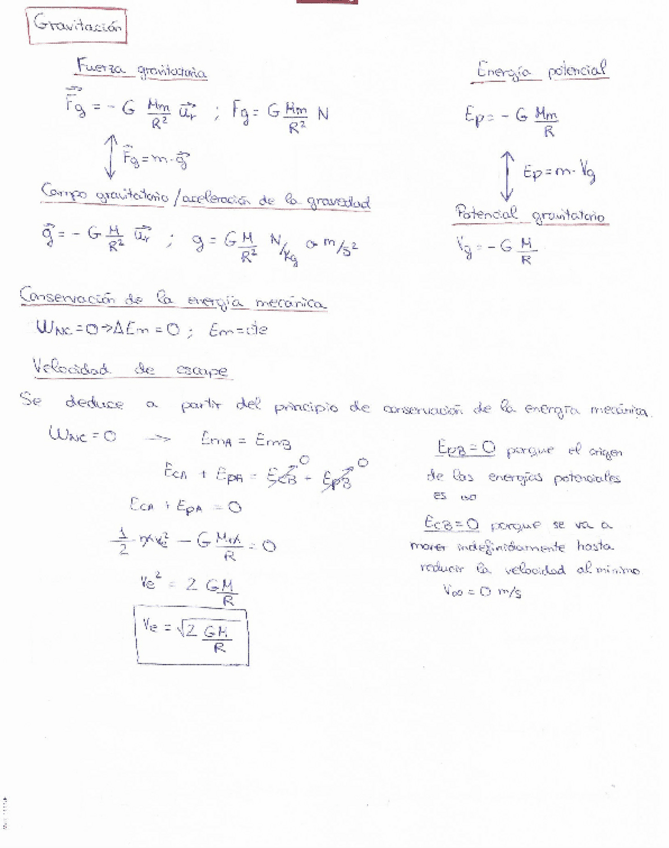 Gravitación
Fuerza gravitatoria
F⃗g = - G Mm/R² u⃗r ; Fg = G Mm/R² N
F⃗g = m · g⃗
Campo gravitatorio / aceleración de la gravedad
g⃗ = - G M/R² u⃗r ; g = G M/R² N/kg o m/s²
Energía potencial
Ep = - G Mm/R
Ep = m · Vg
Potencial gravitatorio
Vg = - G M/R
Conservación de la energía mecánica
WNC = 0 → ΔEm = 0 ; Em = cte
Velocidad de escape
Se deduce a partir del principio de conservación de la energía mecánica.
WNC = 0 → EmA = EmB
EcA + EpA = EcB⁰ - EpB⁰
EcA + EpA = 0
1/2 m ve² - G Mm/R = 0
Ve² = 2 GM/R
Ve = √2 GM/R
EpB = 0 porque el origen
de las energías potenciales
es ∞
EcB = 0 porque se va a
mover indefinidamente hasta
reducir la velocidad al mínimo
V∞ = 0 m/s